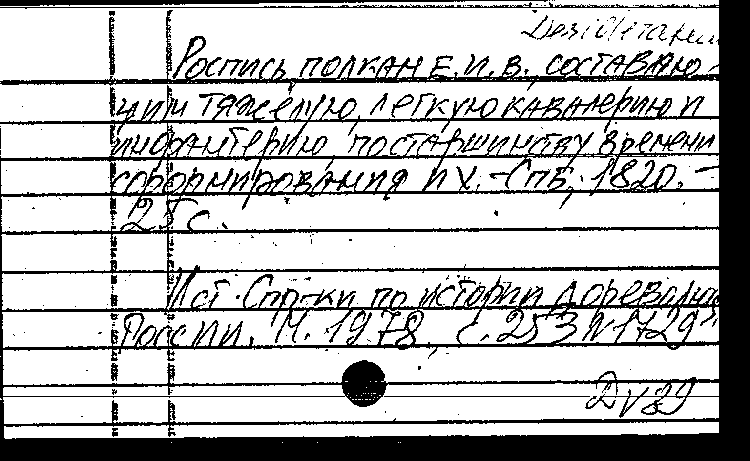 Desiderata
Роспись полкам Е.И.В., составляю-
щим тяжелую, легкую кавалерию и
инфантерию, по старшинству времени
сформирования их. - СПБ, 1820. -
25 с.
Ист. Спр-ки по истории дореволюц
России. М. 1978., с. 253 N 1729
DV89